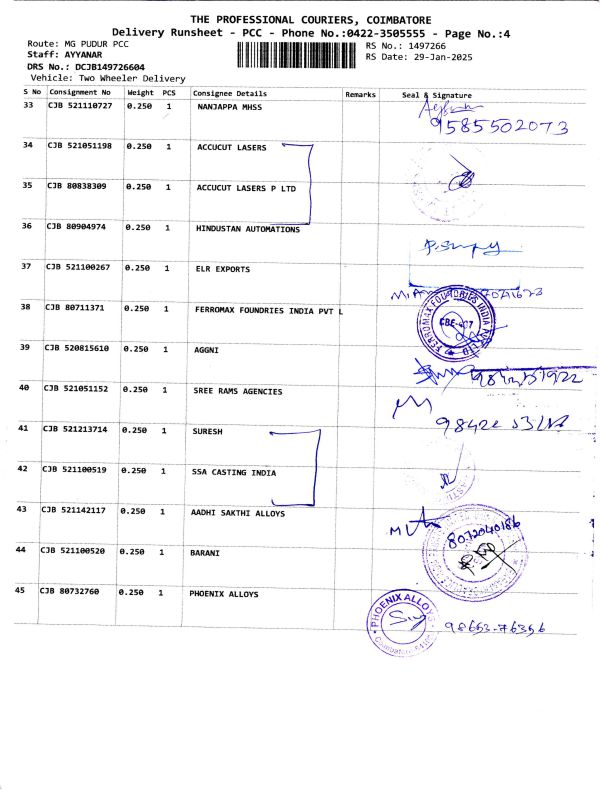 THE PROFESSIONAL COURIERS, COIMBATORE
Delivery Runsheet - PCC - Phone No.:0422-3505555 - Page No.:4
Route: MG PUDUR PCC
RS No.: 1497266
Staff: AYYANAR
RS Date: 29-Jan-2025
DRS No.: DCJB149726604
Vehicle: Two Wheeler Delivery
S No Consignment No Weight PCS Consignee Details Remarks Seal & Signature
33 CJB 521110727 0.250 1 NANJAPPA MHSS
9585502073
34 CJB 521051198 0.250 1 ACCUCUT LASERS
35 CJB 80838309 0.250 1 ACCUCUT LASERS P LTD
36 CJB 80904974 0.250 1 HINDUSTAN AUTOMATIONS
37 CJB 521100267 0.250 1 ELR EXPORTS
38 CJB 80711371 0.250 1 FERROMAX FOUNDRIES INDIA PVT L
FERROMAX FOUNDRIES INDIA
39 CJB 520815610 0.250 1 AGGNI
40 CJB 521051152 0.250 1 SREE RAMS AGENCIES
41 CJB 521213714 0.250 1 SURESH
42 CJB 521100519 0.250 1 SSA CASTING INDIA
43 CJB 521142117 0.250 1 AADHI SAKTHI ALLOYS
8072040186
44 CJB 521100520 0.250 1 BARANI
45 CJB 80732760 0.250 1 PHOENIX ALLOYS
PHOENIX ALLOYS
98653-76356